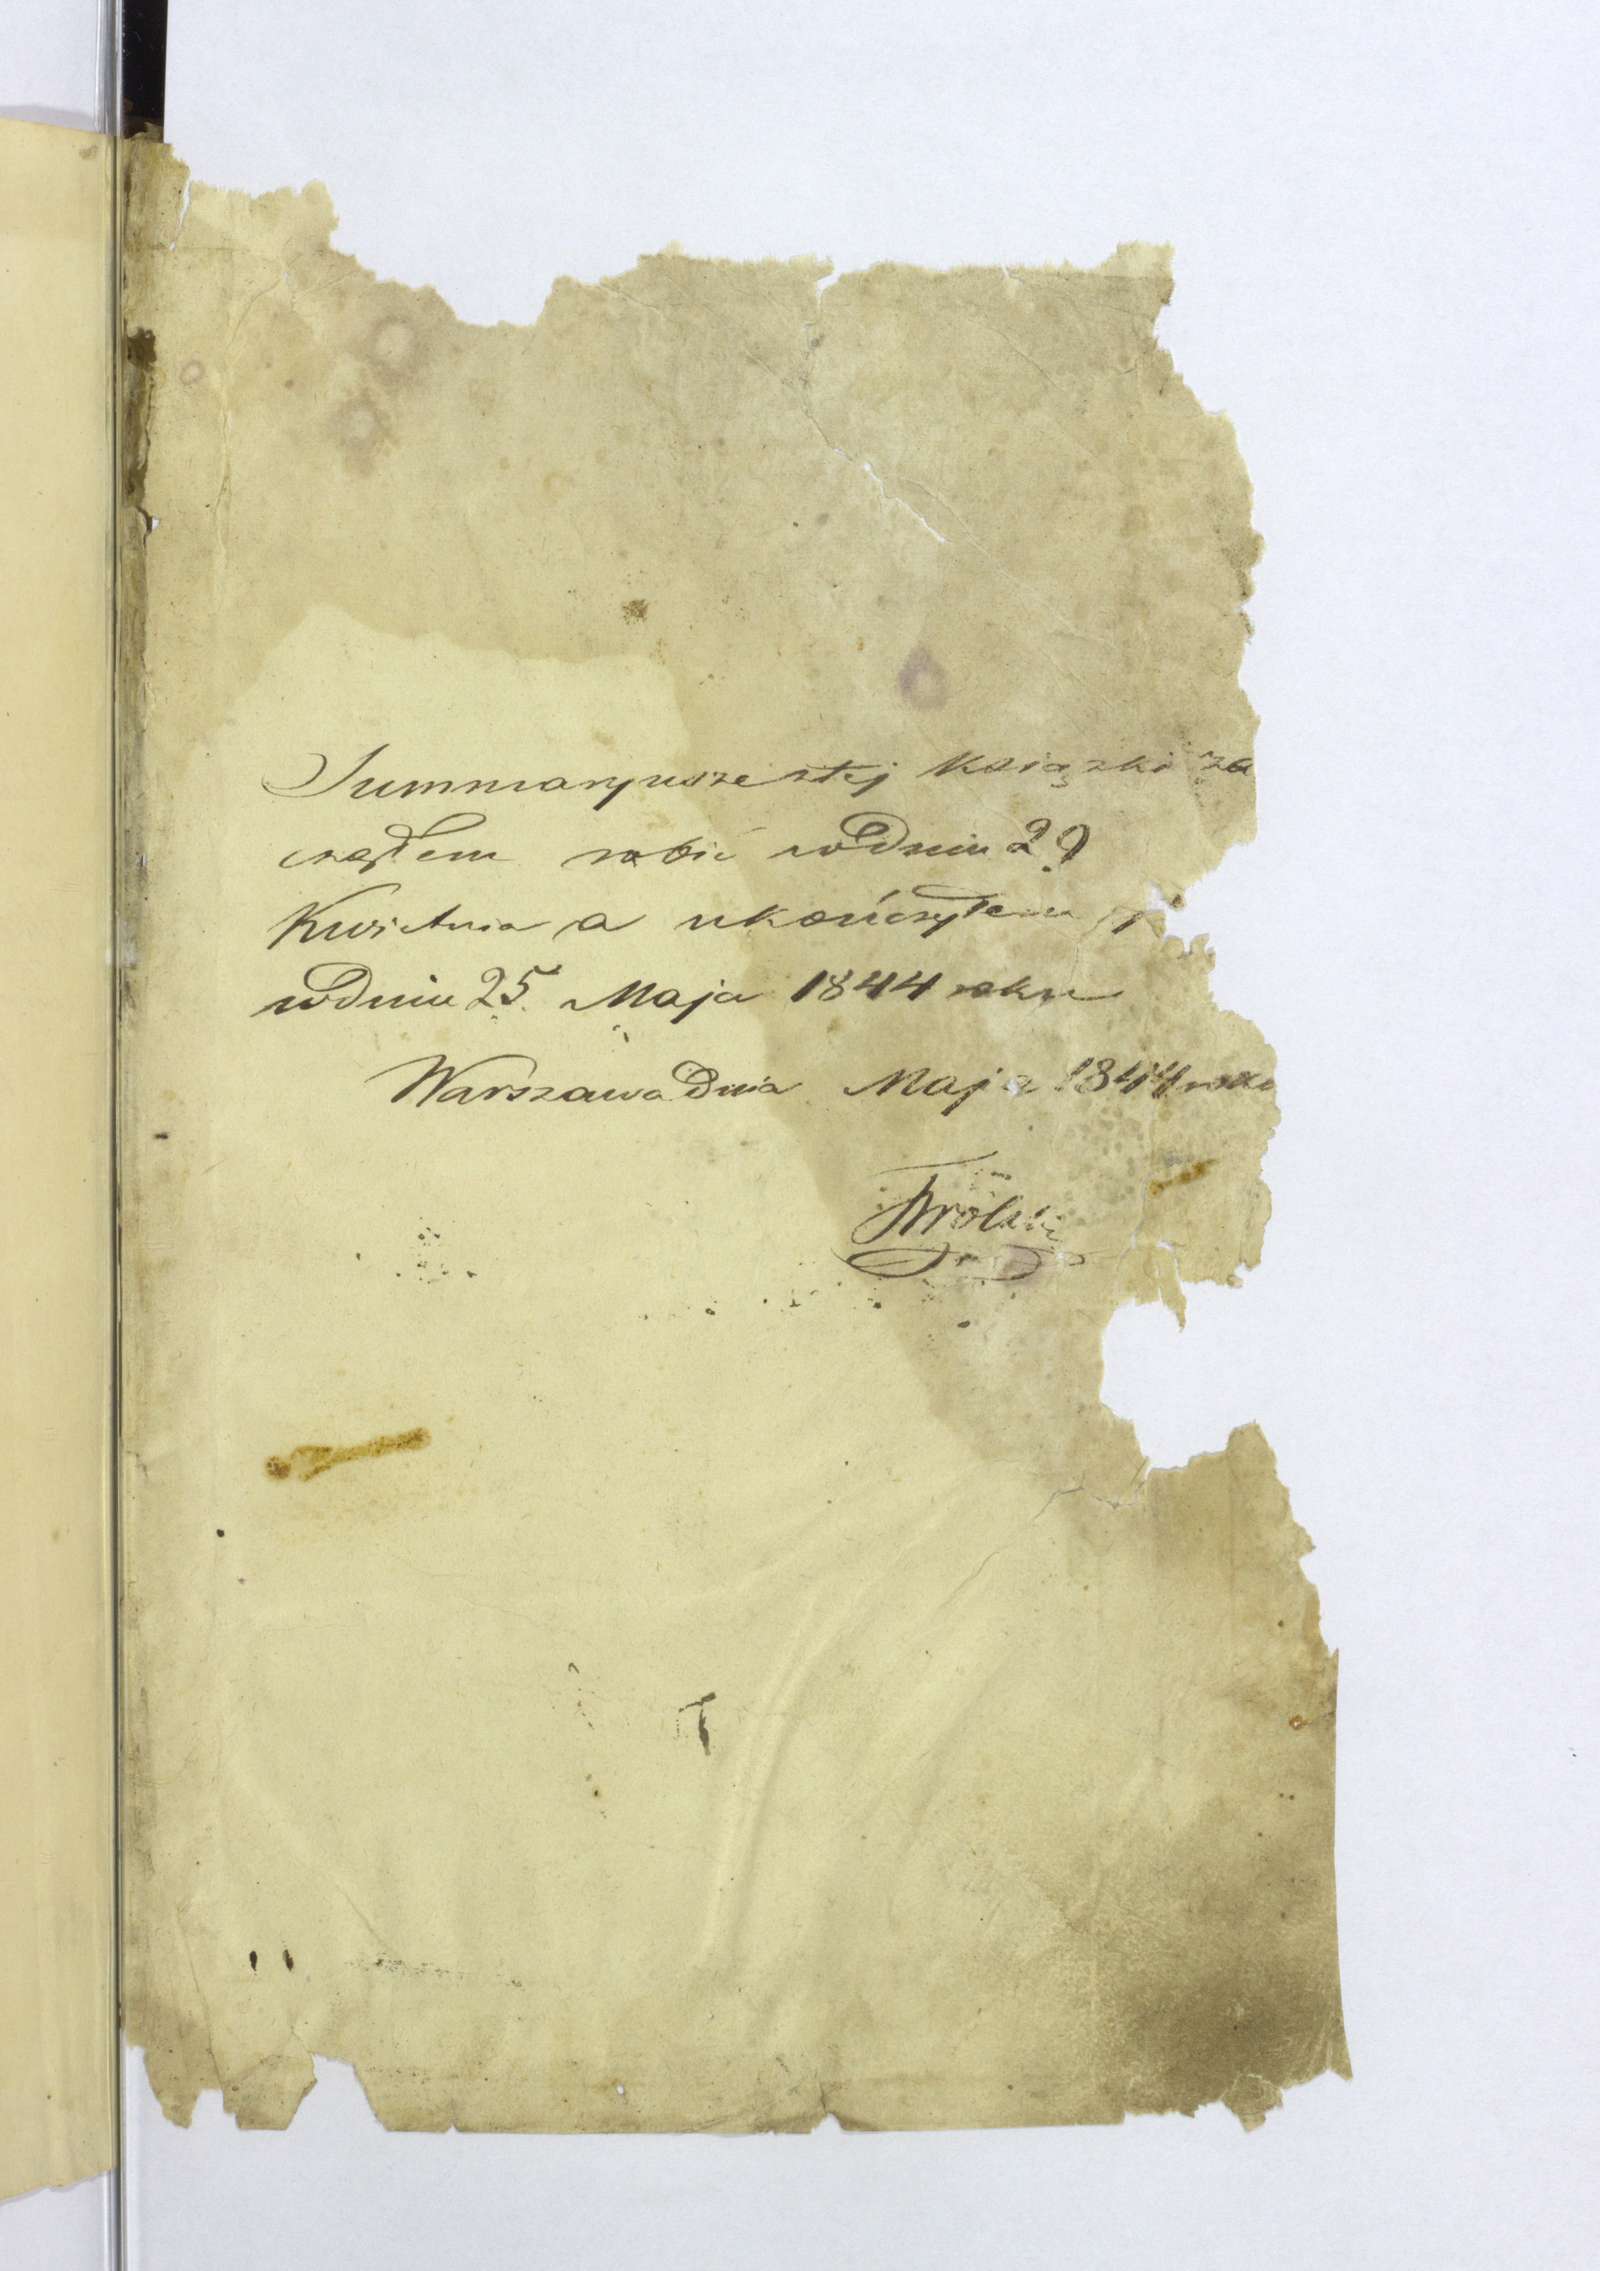 Summaryusze z tej Książki za
cząłem robić w Dniu 29
Kwietnia a ukończyłem
w Dniu 25 Maja 1844 roku
Warszawa Dnia Maja 1844 roku